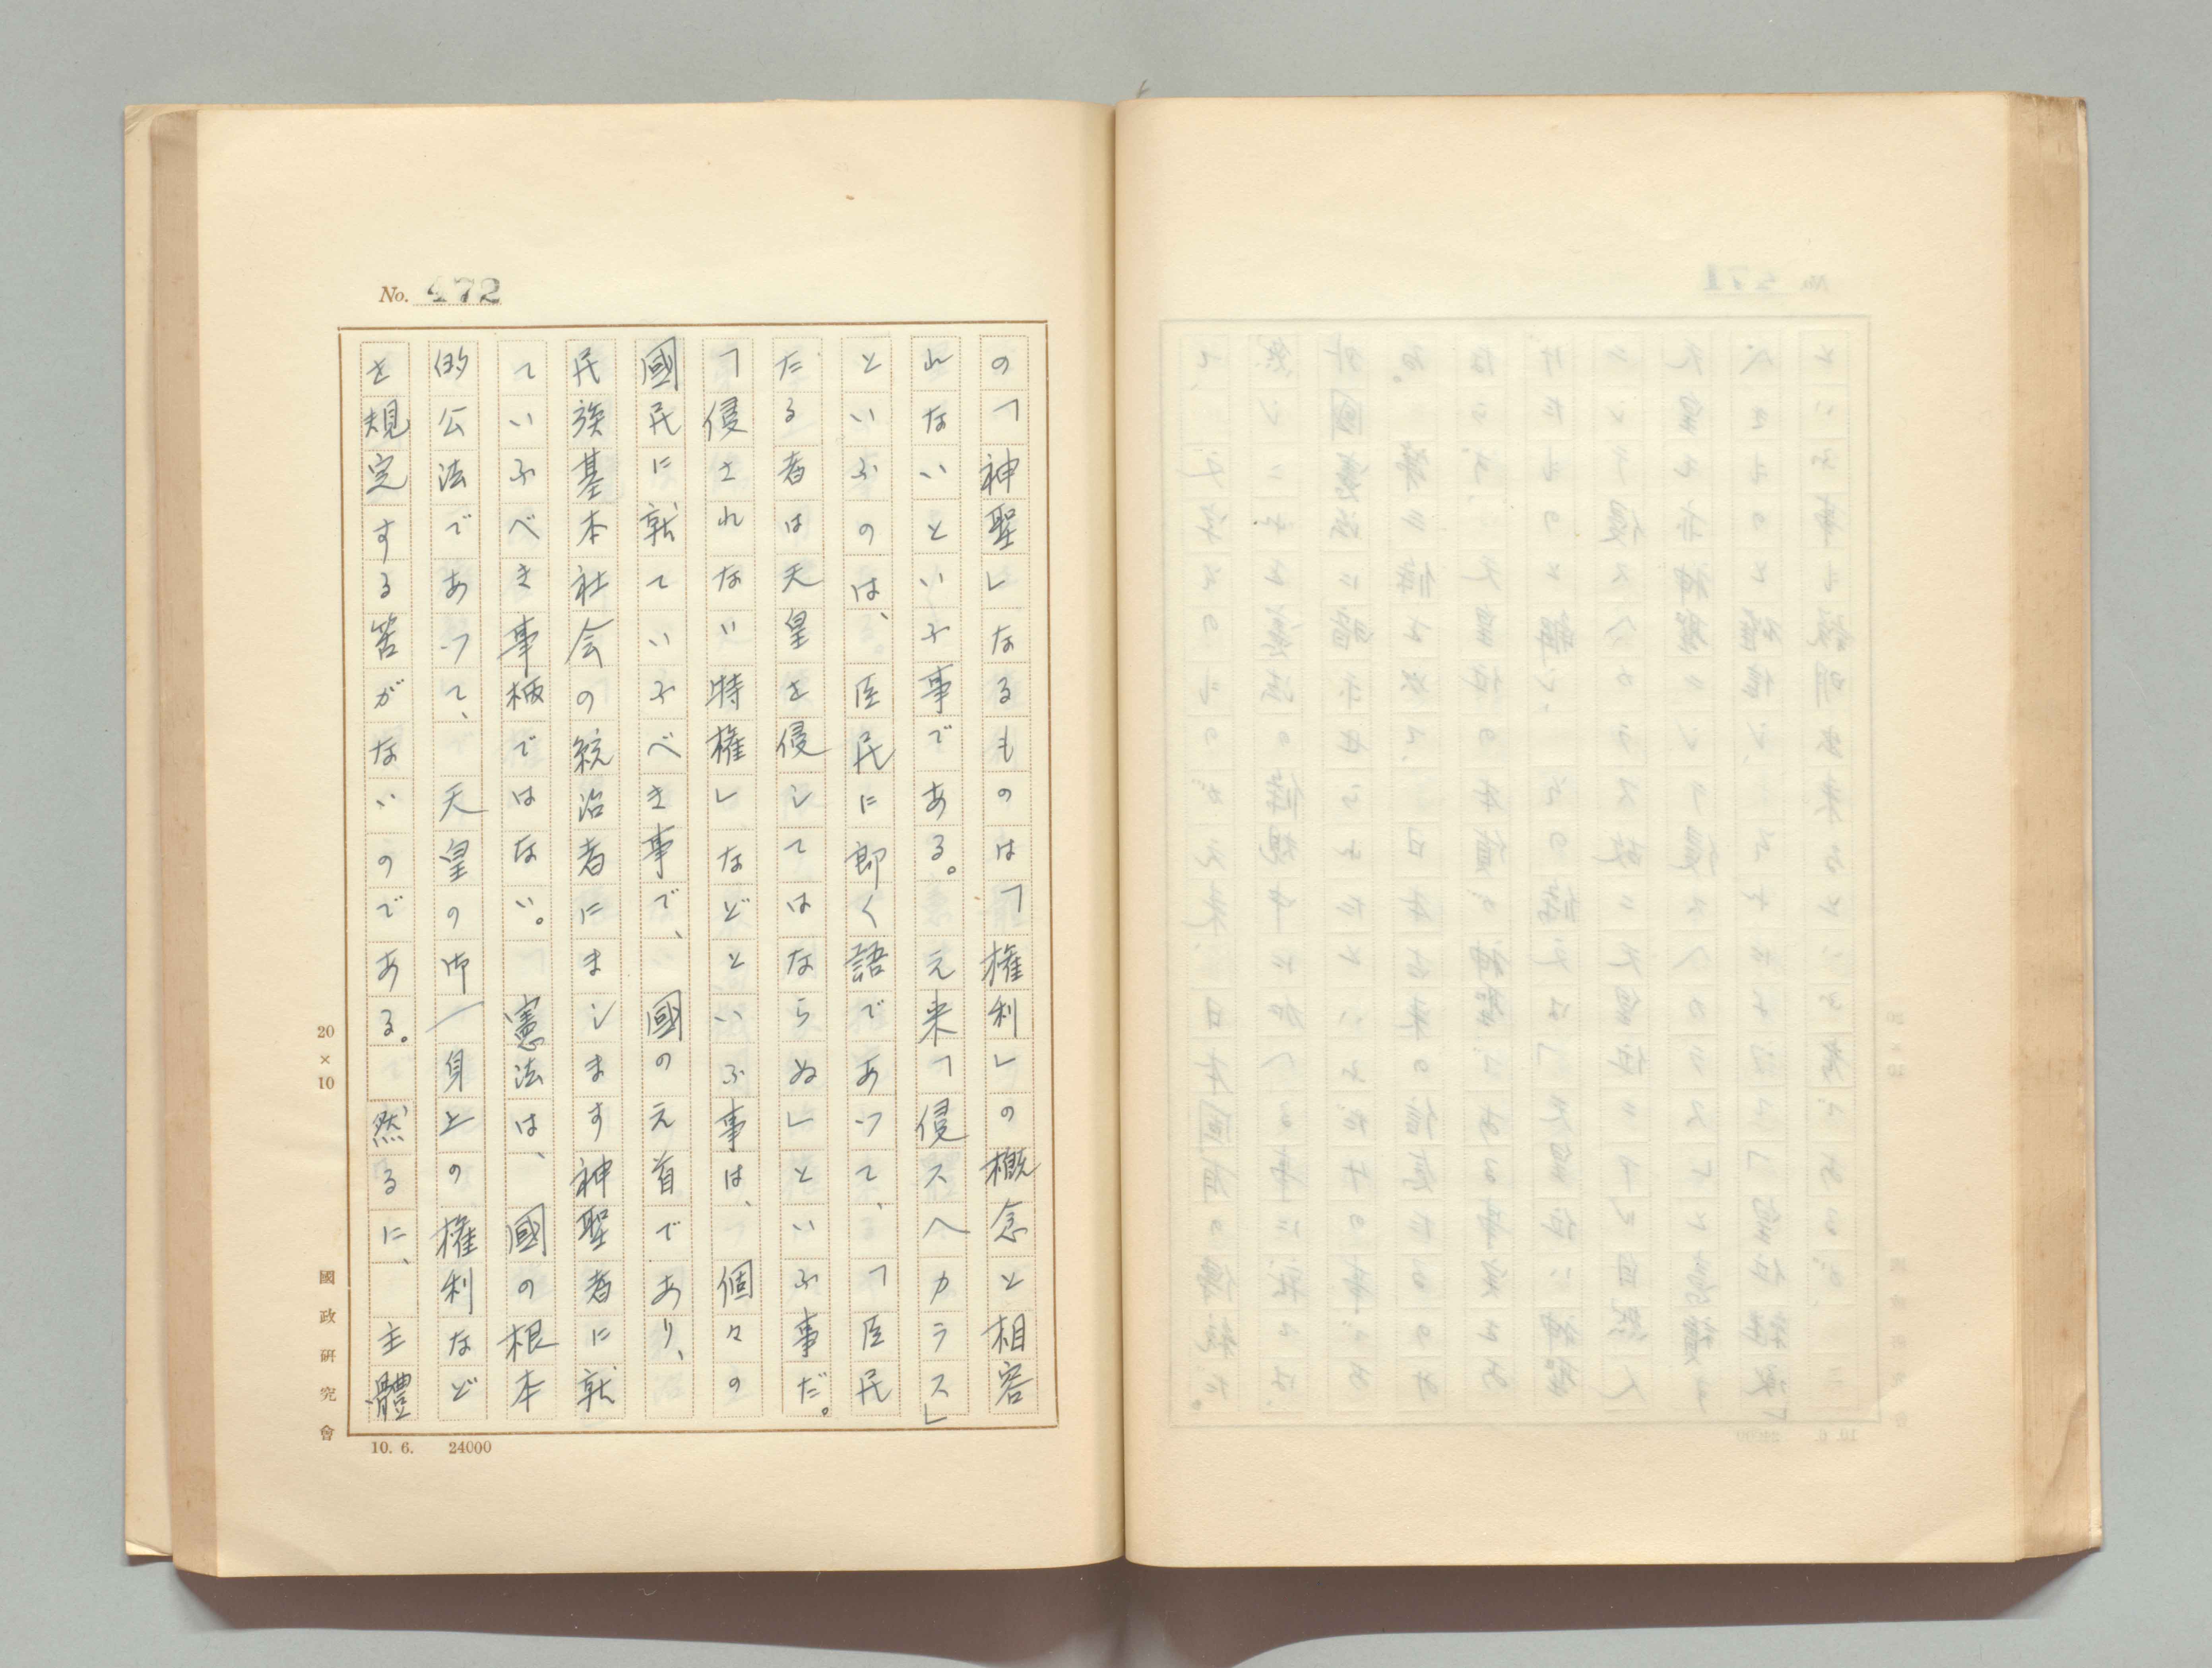 No. 472
の「神聖」なるものは「権利」の概念と相容
れないといふ事である。元来「侵スヘカラス」
といふのは、臣民に即く語であつて、「臣民
たる者は天皇を侵してはならぬ」といふ事だ。
「侵されない特権」などといふ事は、個々の
國民に就ていふべき事で、國の元首であり、
民族基本社会の統治者にまします神聖者に就
ていふべき事柄ではない。憲法は、國の根本
的公法であつて、天皇の御一身上の権利など
を規定する筈がないのである。然るに、主體
20×10
國政研究會
10. 6. 24000